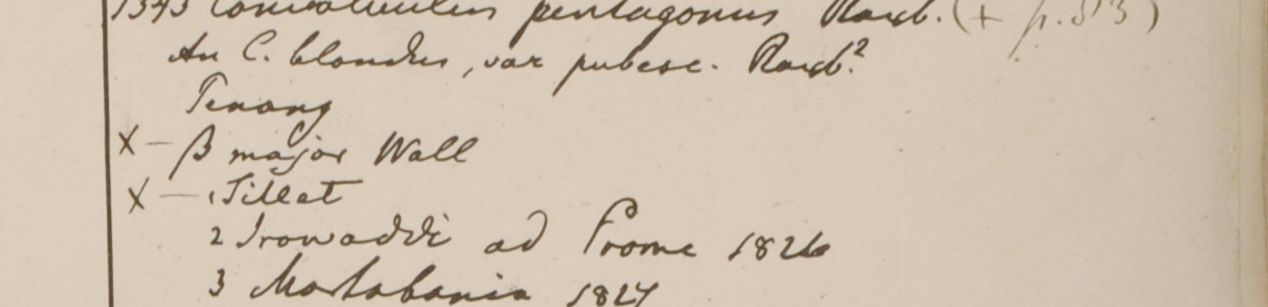 1343 Convolvulus pentagonus Roxb. (+ p. 83)
An C. blandus, var pubesc. Roxb.?
Penang
X — β major Wall
X — 1 Sillet
2 Irowaddi ad Prome 1826
3 Martabania 1827